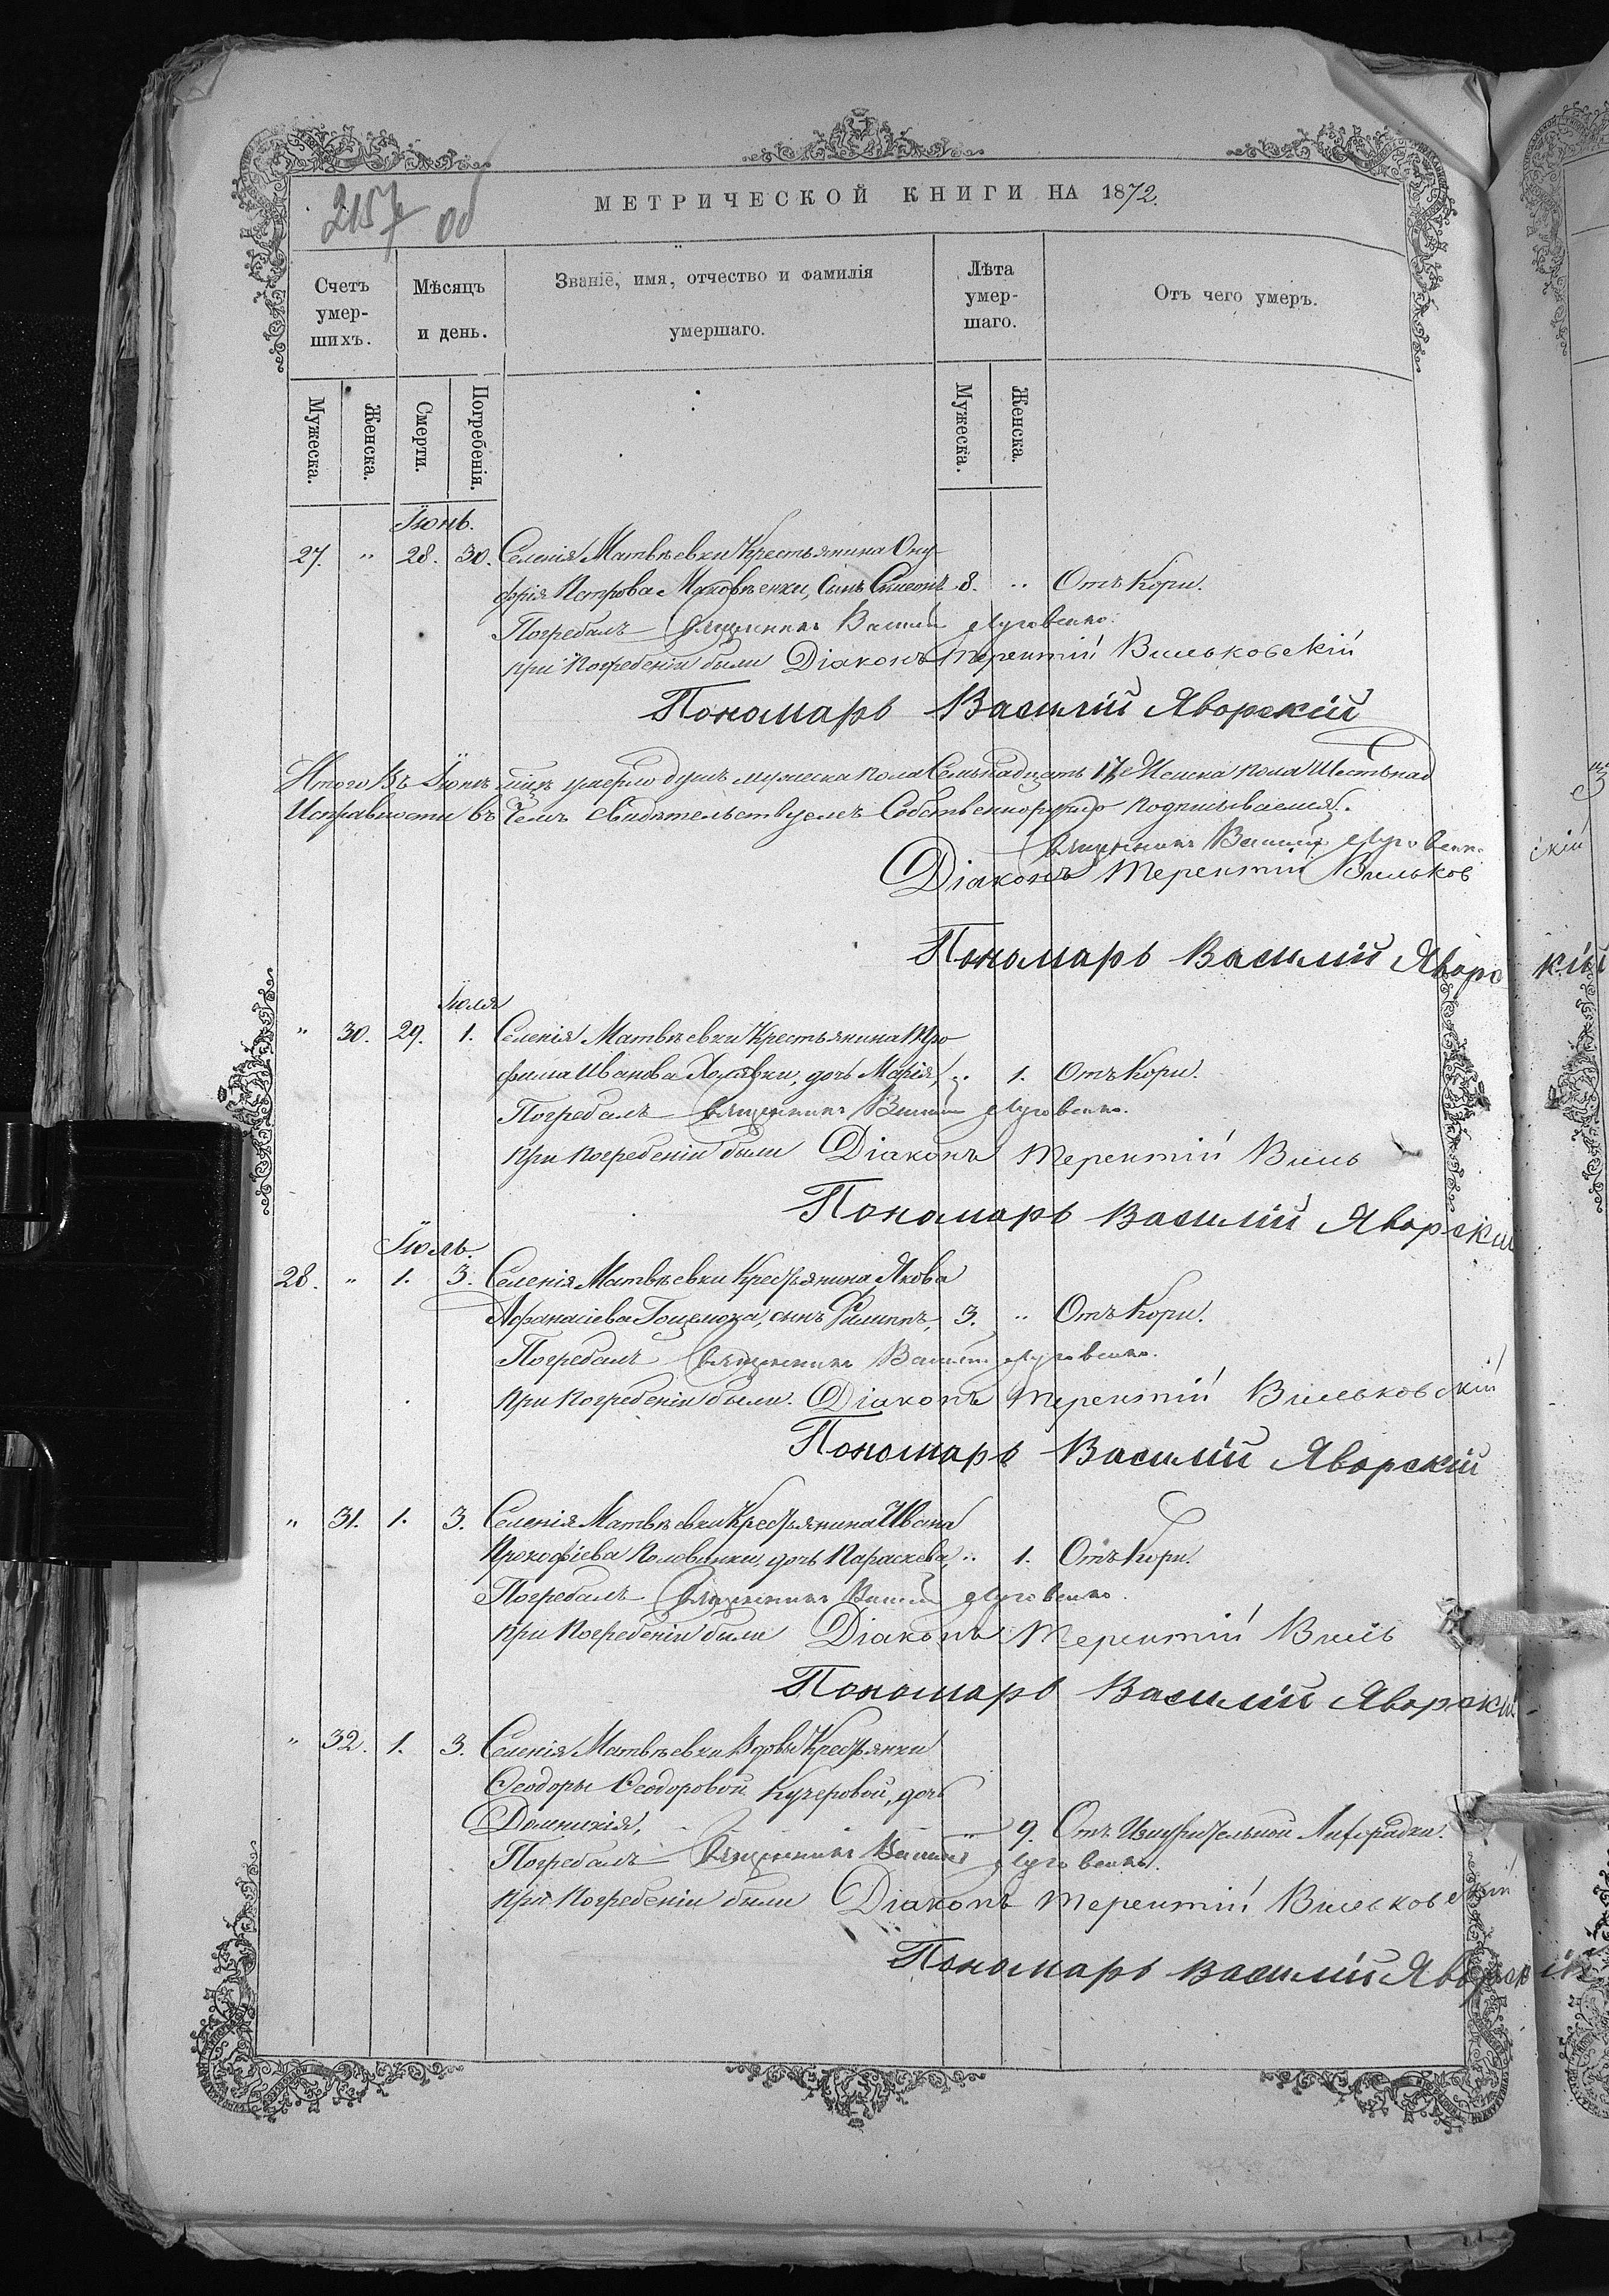 2157 об
МЕТРИЧЕСКОЙ КНИГИ НА 1872.
Счетъ умер-шихъ.
Мѣсяцъ и день.
Званіе, имя, отчество и фамилія умершаго.
Лѣта умер-шаго.
Отъ чего умеръ.
Мужеска.
Женска.
Смерти.
Погребенія.
Мужеска.
Женска.
Іюнь.
27. " 28. 30. Селенія Матвѣевки Крестьянина Ону-
фрія Петрова Маковѣенки, сынъ Симеонъ 8. " Отъ Кори.
Погребалъ Священникъ Василій Луговенко.
при Погребеніи были Діаконъ Терентій Вильковскій
Пономарь Василій Яворскій
Итого въ Іюнѣ мцѣ умерло душъ мужеска пола Семьнадцать 17, Женска пола Шестьнад
Исправности въ Чемъ свидѣтельствуемъ Собственноручно подписываемся.
Священникъ Василій Луговенко
Діаконъ Терентій Вильковскій
Пономарь Василій Яворскій
Іюля
" 30. 29. 1. Селенія Матвѣевки Крестьянина Тро
фима Иванова Холявки, дочь Марія, " 1. Отъ Кори.
Погребалъ Священникъ Василій Луговенко.
При погребеніи были Діаконъ Терентій Виль
Пономарь Василій Яворскій
Іюль.
28. " 1. 3. Селенія Матвѣевки Крестьянина Якова
Афанасіева Гоцелюка, сынъ Филиппъ, 3. " Отъ Кори.
Погребалъ Священникъ Василій Луговенко.
При погребеніи были. Діаконъ Терентій Вильковскій
Пономарь Василій Яворскій
" 31. 1. 3. Селенія Матвѣевки Крестьянина Ивана
Прокофіева Половинки, дочь Параскева, " 1. Отъ Кори.
Погребалъ Священникъ Василій Луговенко.
при Погребеніи были Діаконъ Терентій Виль
Пономарь Василій Яворскій
" 32. 1. 3. Селенія Матвѣевки Вдовы Крестьянки
Ѳеодоры Ѳеодоровой Кучеровой, дочь
Домникія, " 9. Отъ Изнурительной Лихорадки.
Погребалъ Священникъ Василій Луговенко.
при Погребеніи были Діаконъ Терентій Вильковскій
Пономарь Василій Яворскій